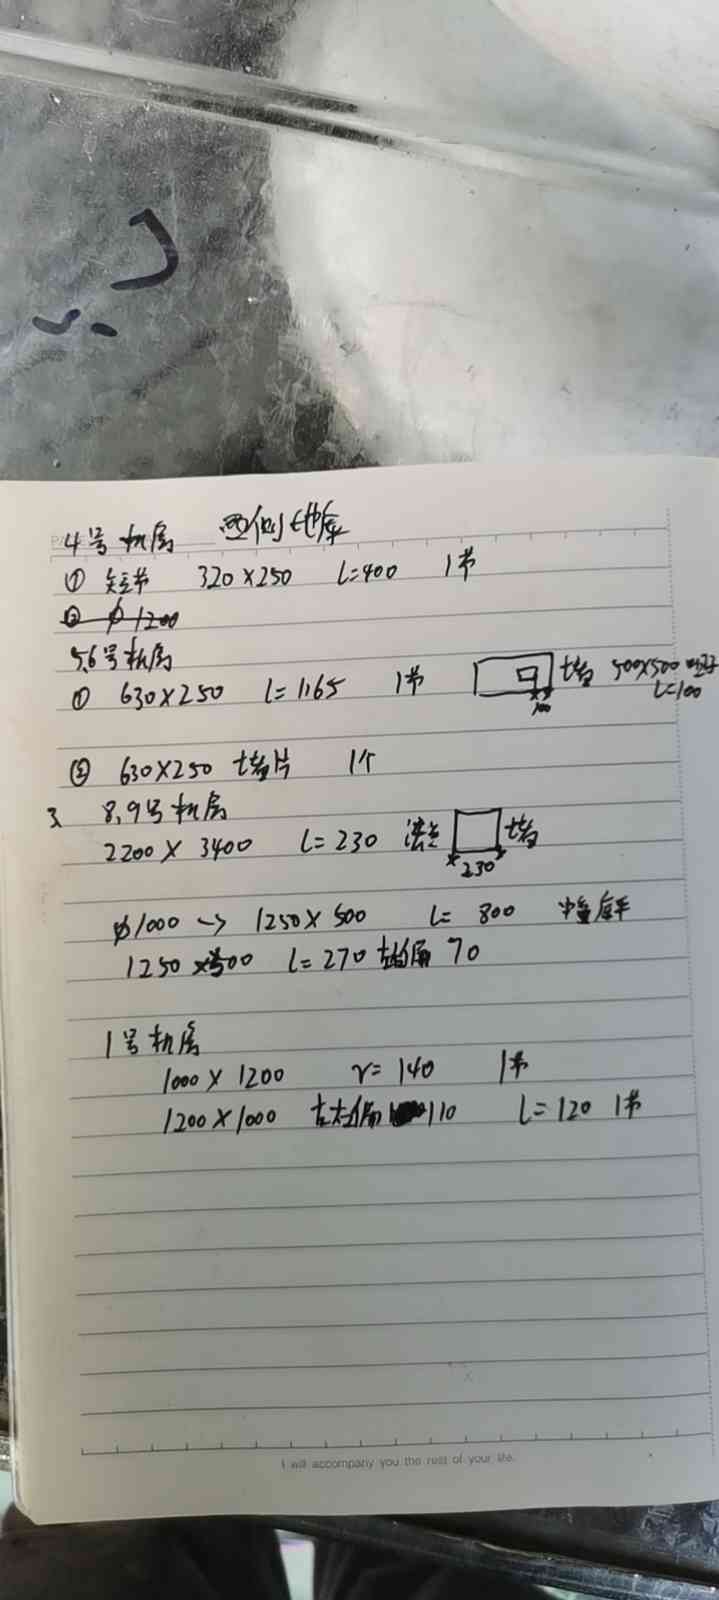 4号机房 西侧地库
① 短节 320×250 L=400 1节
② φ1200
5.6号机房
① 630×250 L=1165 1节 堵 500×500
100 L=100
② 630×250 堵片 1个
3、 8.9号机房
2200× 3400 L=230 法兰 堵
230
φ1000 → 1250×500 L= 800
1250×500 L=270 偏 70
1号机房
1000×1200 r=140 1节
1200×1000 左右偏 110 L=120 1节
I will accompany you the rest of your life.